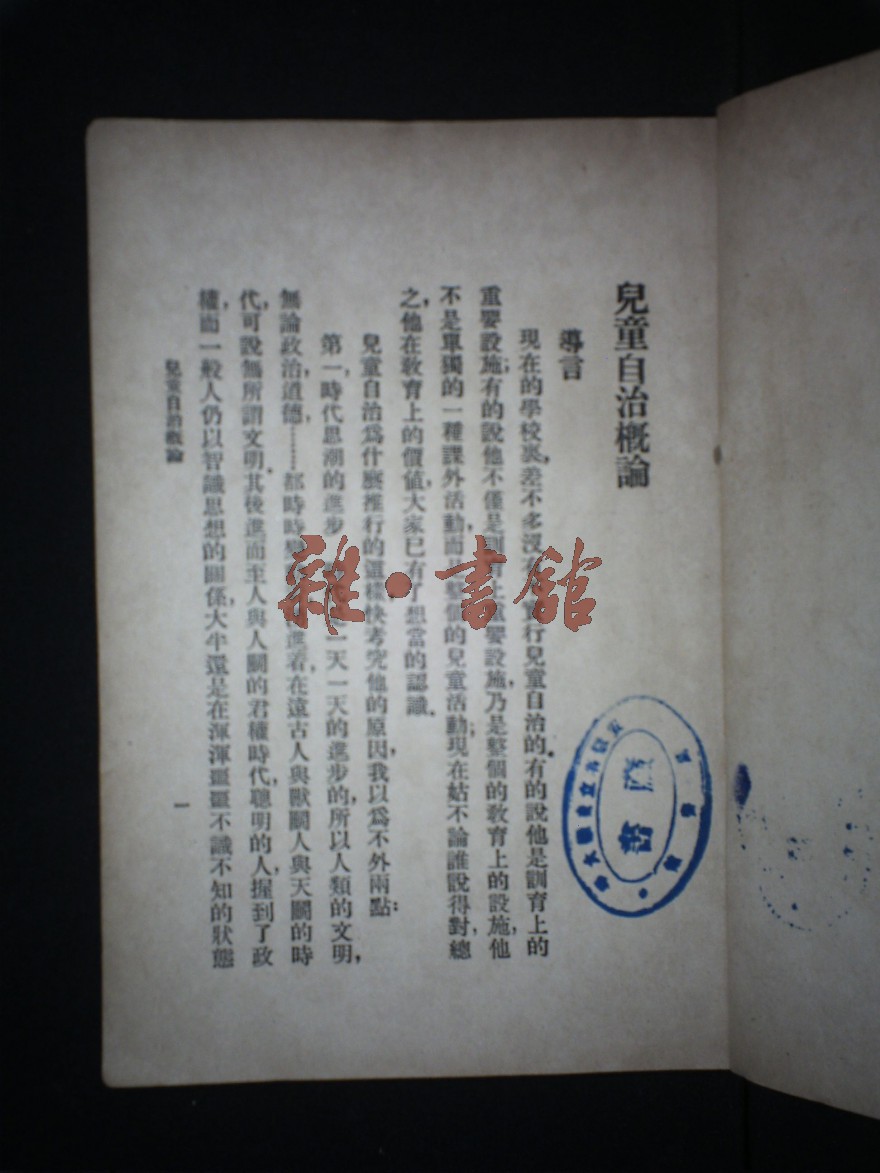 兒童自治概論
導言
現在的學校裏，差不多沒有不實行兒童自治的。有的說他是訓育上的
重要設施；有的說他不僅是訓育上重要設施，乃是整個的教育上的設施，他
不是單獨的一種課外活動，而是整個的兒童活動；現在姑不論誰說得對，總
之，他在教育上的價值，大家已有了想當的認識。
兒童自治爲什麼推行的這樣快考究他的原因，我以爲不外兩點：
第一，時代思潮的進步 一天一天的進步的，所以人類的文明，
無論政治，道德……都時時 進着，在遠古人與獸鬭人與天鬭的時
代，可說無所謂文明。其後進而至人與人鬭的君權時代，聰明的人，握到了政
權，而一般人仍以智識思想的關係，大半還是在渾渾噩噩不識不知的狀態
兒童自治概論
一
雜·書館